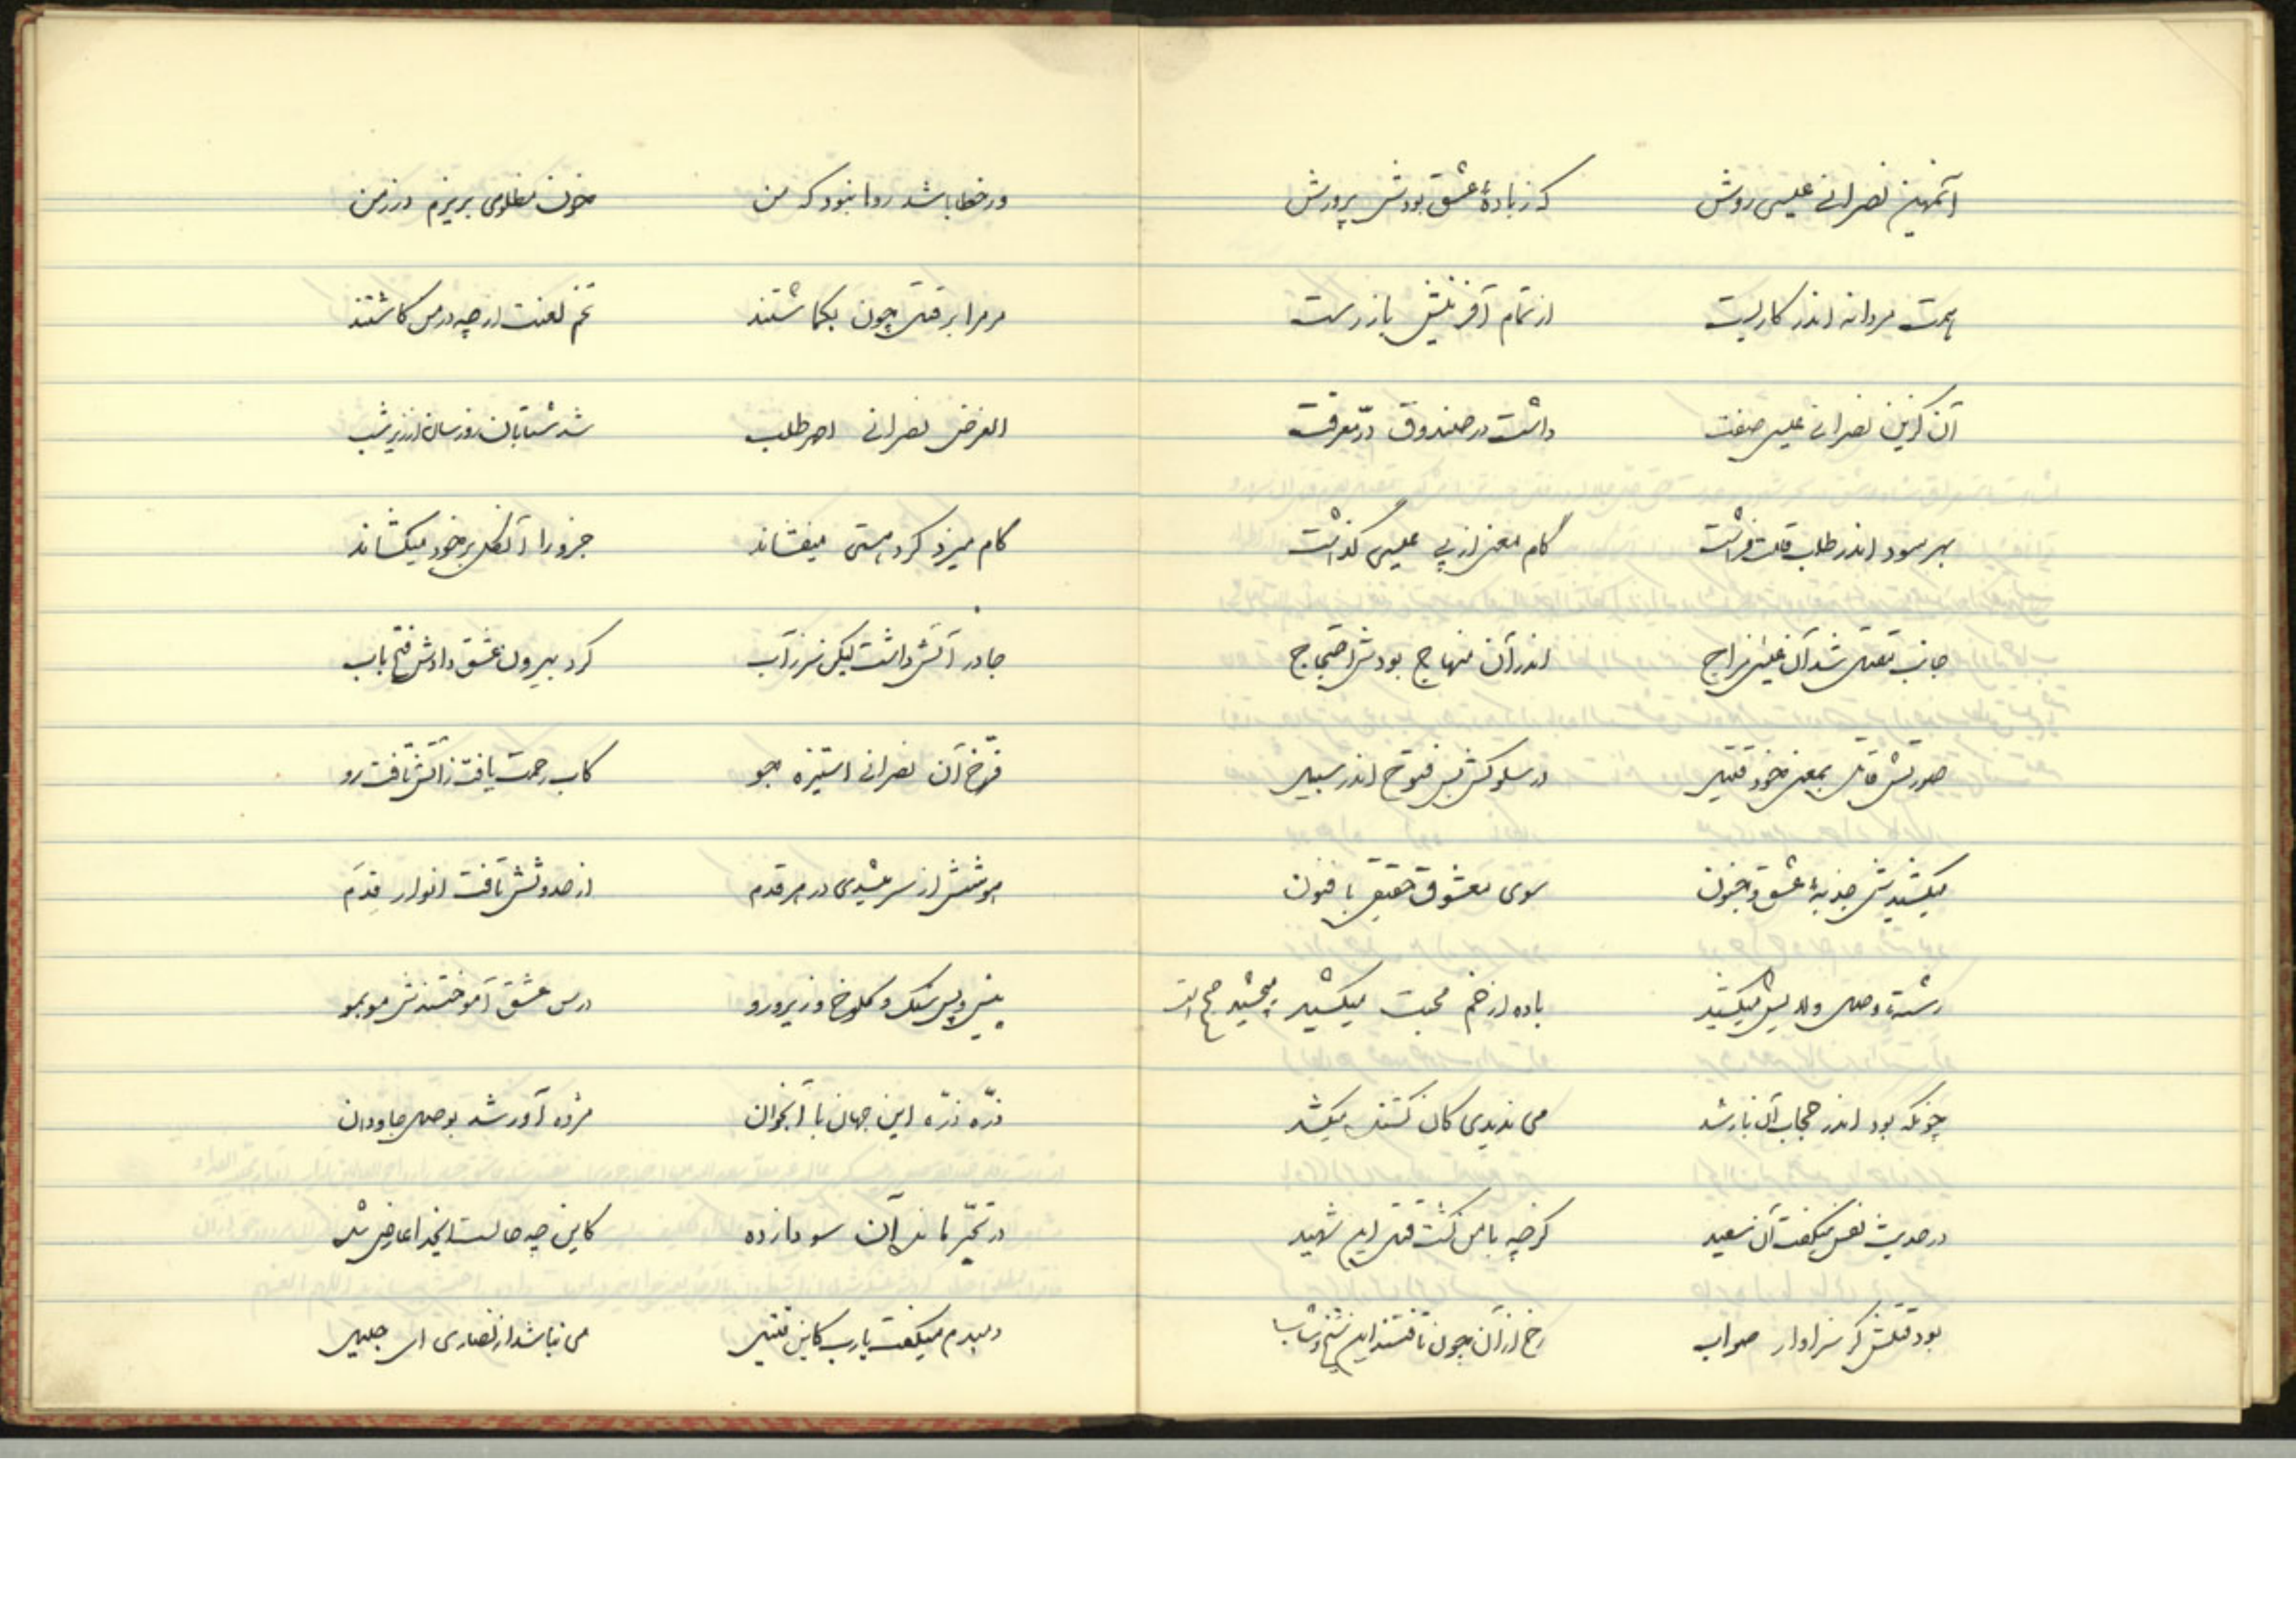 آنمهین نصرانی عیسی روش که ز بادهٔ عشق بودش پرورش
همت مردانه اندر کار بست از تمام آفرینش باز رست
آن گزین نصرانی عیسی صفت داشت در صندوق درّ معرفت
بهر سود اندر طلب قامت فراشت گام معنی از پی عیسی گذاشت
جانب مقتل شد آن عیسی مزاج اندر آن منهاج بودش احتجاج
صورتش قاتل بمعنی خود قتیل در سلوکش بس فتوح اندر سبیل
میکشیدش جذبهٔ عشق و جنون سوی معشوق حقیقی با فنون
رشتهٔ وصل ولا پیش میکشید باده از خم محبت میکشید میچشید صح است
چونکه بود اندر حجاب آن نارشد می ندیدی کان کشنده میکشد
در حدیث نفس میگفت آن سعید گرچه با من گشت قتل این شهید
بود قتلش گر سزاوار صواب رخ از آن چون تافتند این شیخ و شاب
ور خطا باشد روا نبود که من خون مظلومی بریزم در زمن
مر مرا بر قتل چون بگماشتند تخم لعنت از چه در من کاشتند
الغرض نصرانی طلب شد شتابان روز سان اندر شب
گام میزد گرد هستی میفشاند جزو را آن کل بر خود میکشاند
جا در آتش داشت لیکن سر ز آب کرد بیرون عشق دادش فتح باب
فرّخ آن نصرانی استیزه جو کاب رحمت یافت ز آتش تافت رو
هوشش از سر میشدی در هر قدم از حدوثش تافت انوار قِدَم
پیش و پس سنگ و کلوخ و زیر و رو درس عشق آموختندش مو بمو
ذرّه ذرّه این جهان با آنجوان مژده آور شد بوصل جاودان
در تحیّر ماند آن سودا زده کاین چه حالست ایخدا عارض شده
دمبدم میگفت یا رب کاین قتیل می نباشد از نصاری ای جلیل